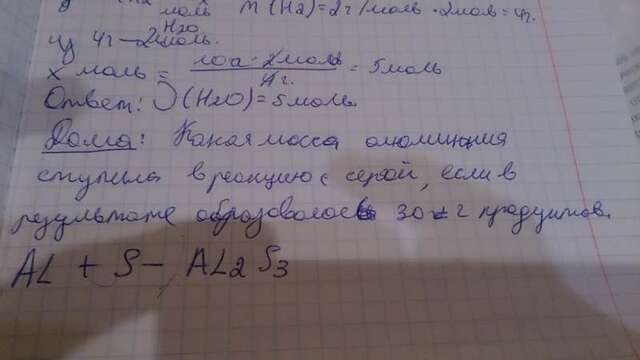 моль m(H2)=2г/моль·2моль=4г.
H2O
4г—2моль.
x моль = 10г·2моль / 4г. = 5моль
Ответ: (H2O)=5моль.
Дома: Какая масса алюминия
ступила в реакцию с серой, если в
результате образовалось 30 г продуктов.
AL + S — AL2S3